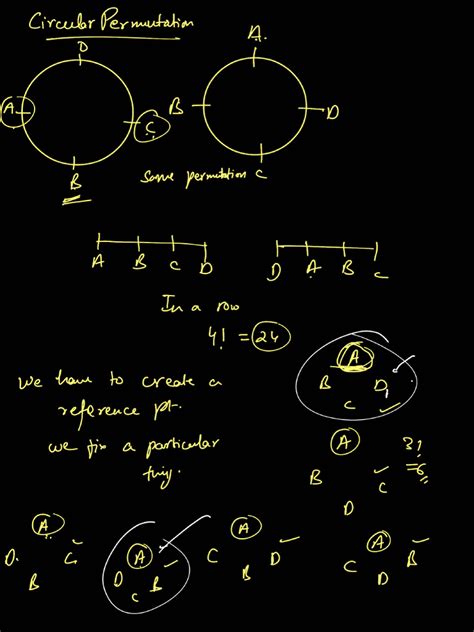 Circular Permutation
D
A C
B
A
B D
C
Same permutation
A B C D
D A B C
In a row
4! = 24
We have to create a
reference pt.
we fix a particular
thing.
A
B D
C
A
B C
D
3!
=6
A
D. C
B
A
D B
C
A
C D
B
A
C B
D